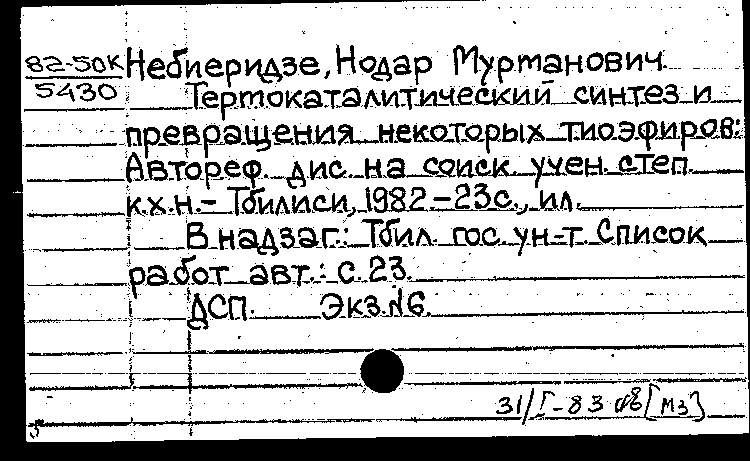 82-50К Небиеридзе, Нодар Муртанович
5430 Термокаталитический синтез и
превращения некоторых тиоэфиров:
Автореф. дис. на соиск. учен. степ.
к.х.н. - Тбилиси, 1982 - 23 с., ил.
В надзаг.: Тбил. гос. ун-т. Список
работ авт.: с. 23.
ДСП. Экз. №6.
31/I-83 [МЗ]